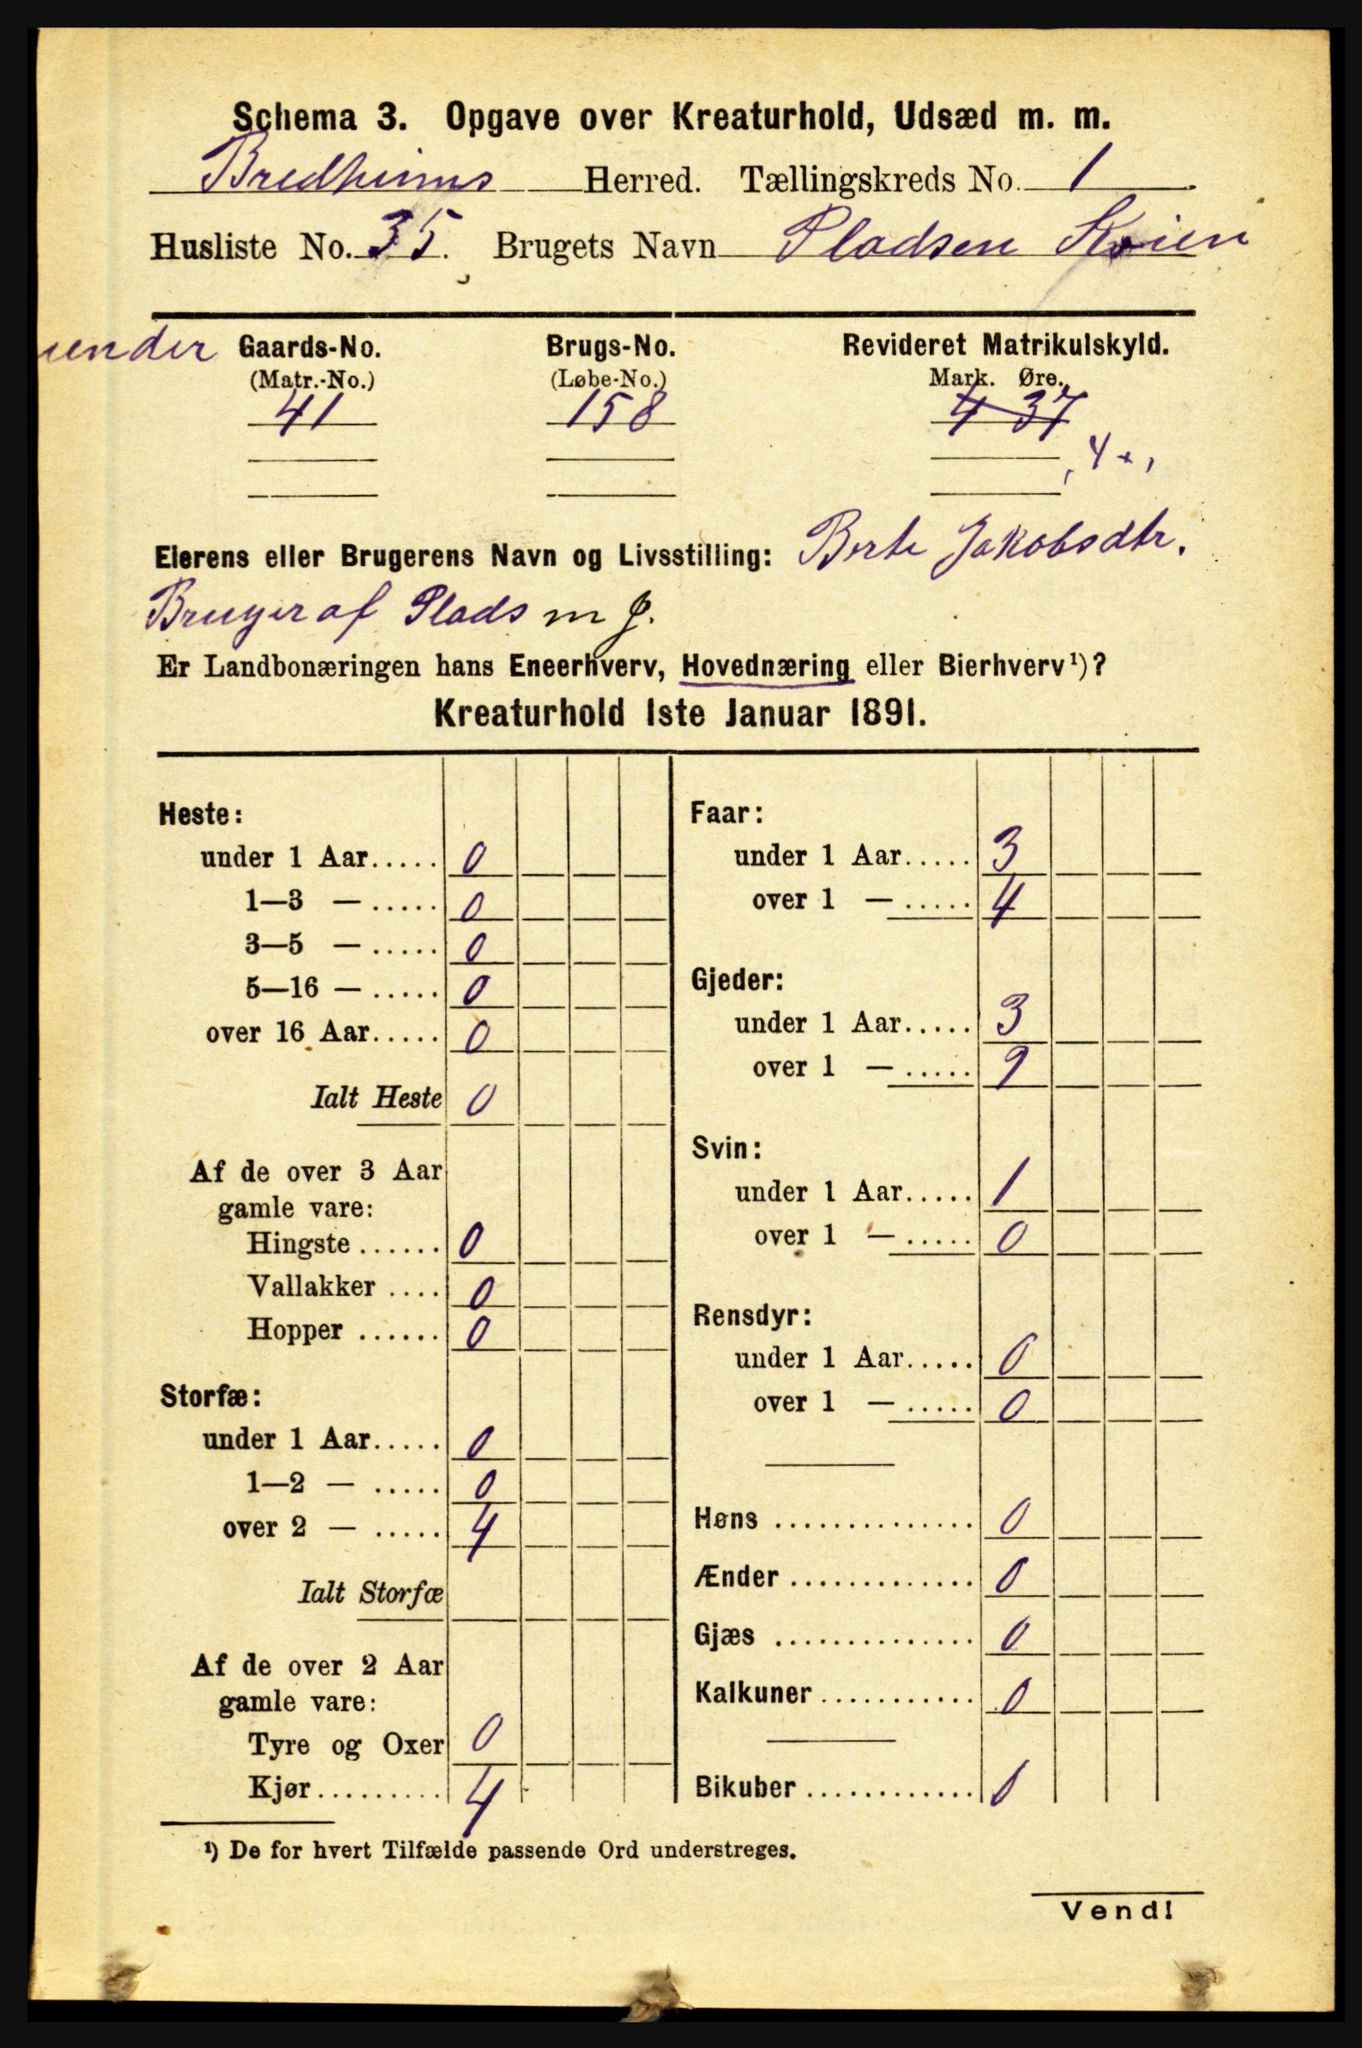 Schema 3. Opgave over Kreaturhold, Udsæd m. m.
Bredheims Herred. Tællingskreds No. 1
Husliste No. 35. Brugets Navn Pladsen Køien
under Gaards-No. Brugs-No. Revideret Matrikulskyld.
(Matr.-No.) (Løbe-No.) Mark. Øre.
41 158 4 37
Eierens eller Brugerens Navn og Livsstilling: Berte Jakobsdtr.
Bruger af Plads m J.
Er Landbonæringen hans Eneerhverv, Hovednæring eller Bierhverv¹)?
Kreaturhold 1ste Januar 1891.
Heste:
under 1 Aar..... 0
1—3 — ..... 0
3—5 — ..... 0
5—16 — ..... 0
over 16 Aar..... 0
Ialt Heste 0
Af de over 3 Aar
gamle vare:
Hingste ...... 0
Vallakker .... 0
Hopper ...... 0
Storfæ:
under 1 Aar..... 0
1—2 — ..... 0
over 2 — ..... 4
Ialt Storfæ
Af de over 2 Aar
gamle vare:
Tyre og Oxer 0
Kjør......... 4
Faar:
under 1 Aar..... 3
over 1 — ..... 4
Gjeder:
under 1 Aar..... 3
over 1 — ..... 9
Svin:
under 1 Aar..... 1
over 1 — ..... 0
Rensdyr:
under 1 Aar..... 0
over 1 — ..... 0
Høns .............. 0
Ænder ............. 0
Gjæs .............. 0
Kalkuner............ 0
Bikuber ............. 0
¹) De for hvert Tilfælde passende Ord understreges.
Vend!